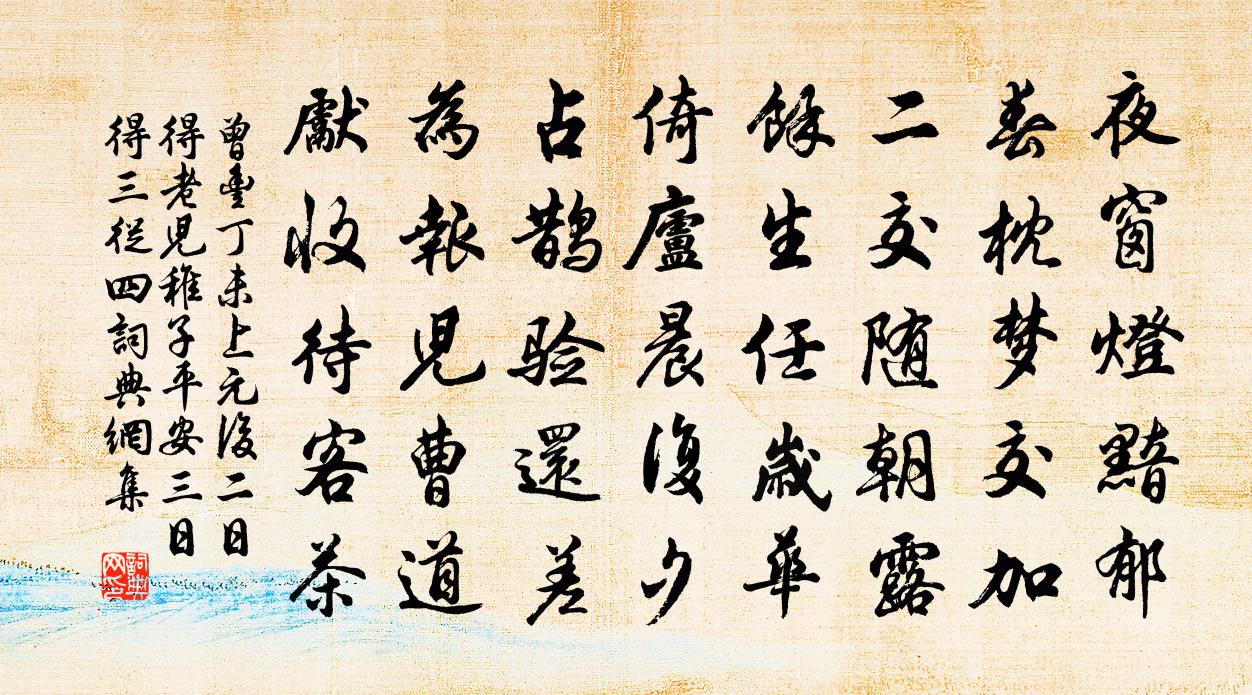 夜窗燈黯郁
春枕梦交加
二交随朝露
餘生任歲華
倚廬晨復夕
占鹊验還差
為報児曹道
獻收待客茶
曾豐丁未上元後二日
得老児稚子平安三日
得三從四詞典網集
詞典
网印